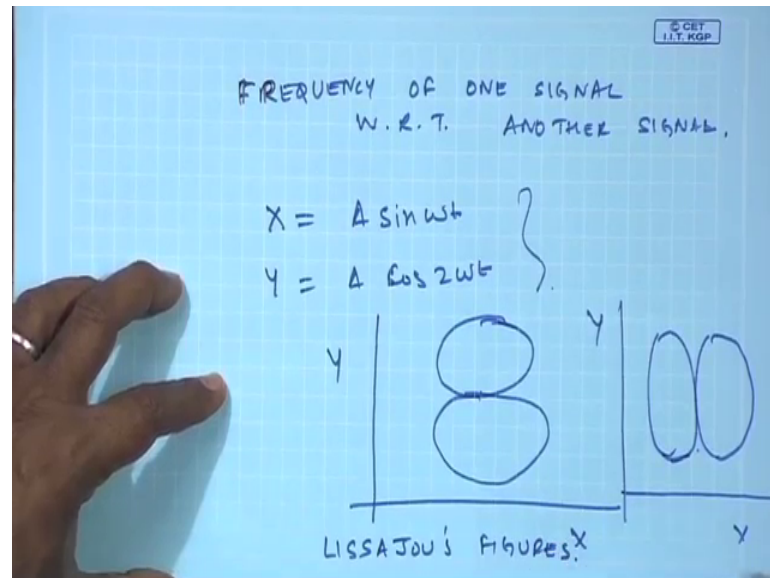 © CET
I.I.T. KGP
FREQUENCY OF ONE SIGNAL
W.R.T. ANOTHER SIGNAL.
X = A sin ωt
Y = A Cos 2ωt
Y
Y
X
X
LISSAJOU'S FIGURES.